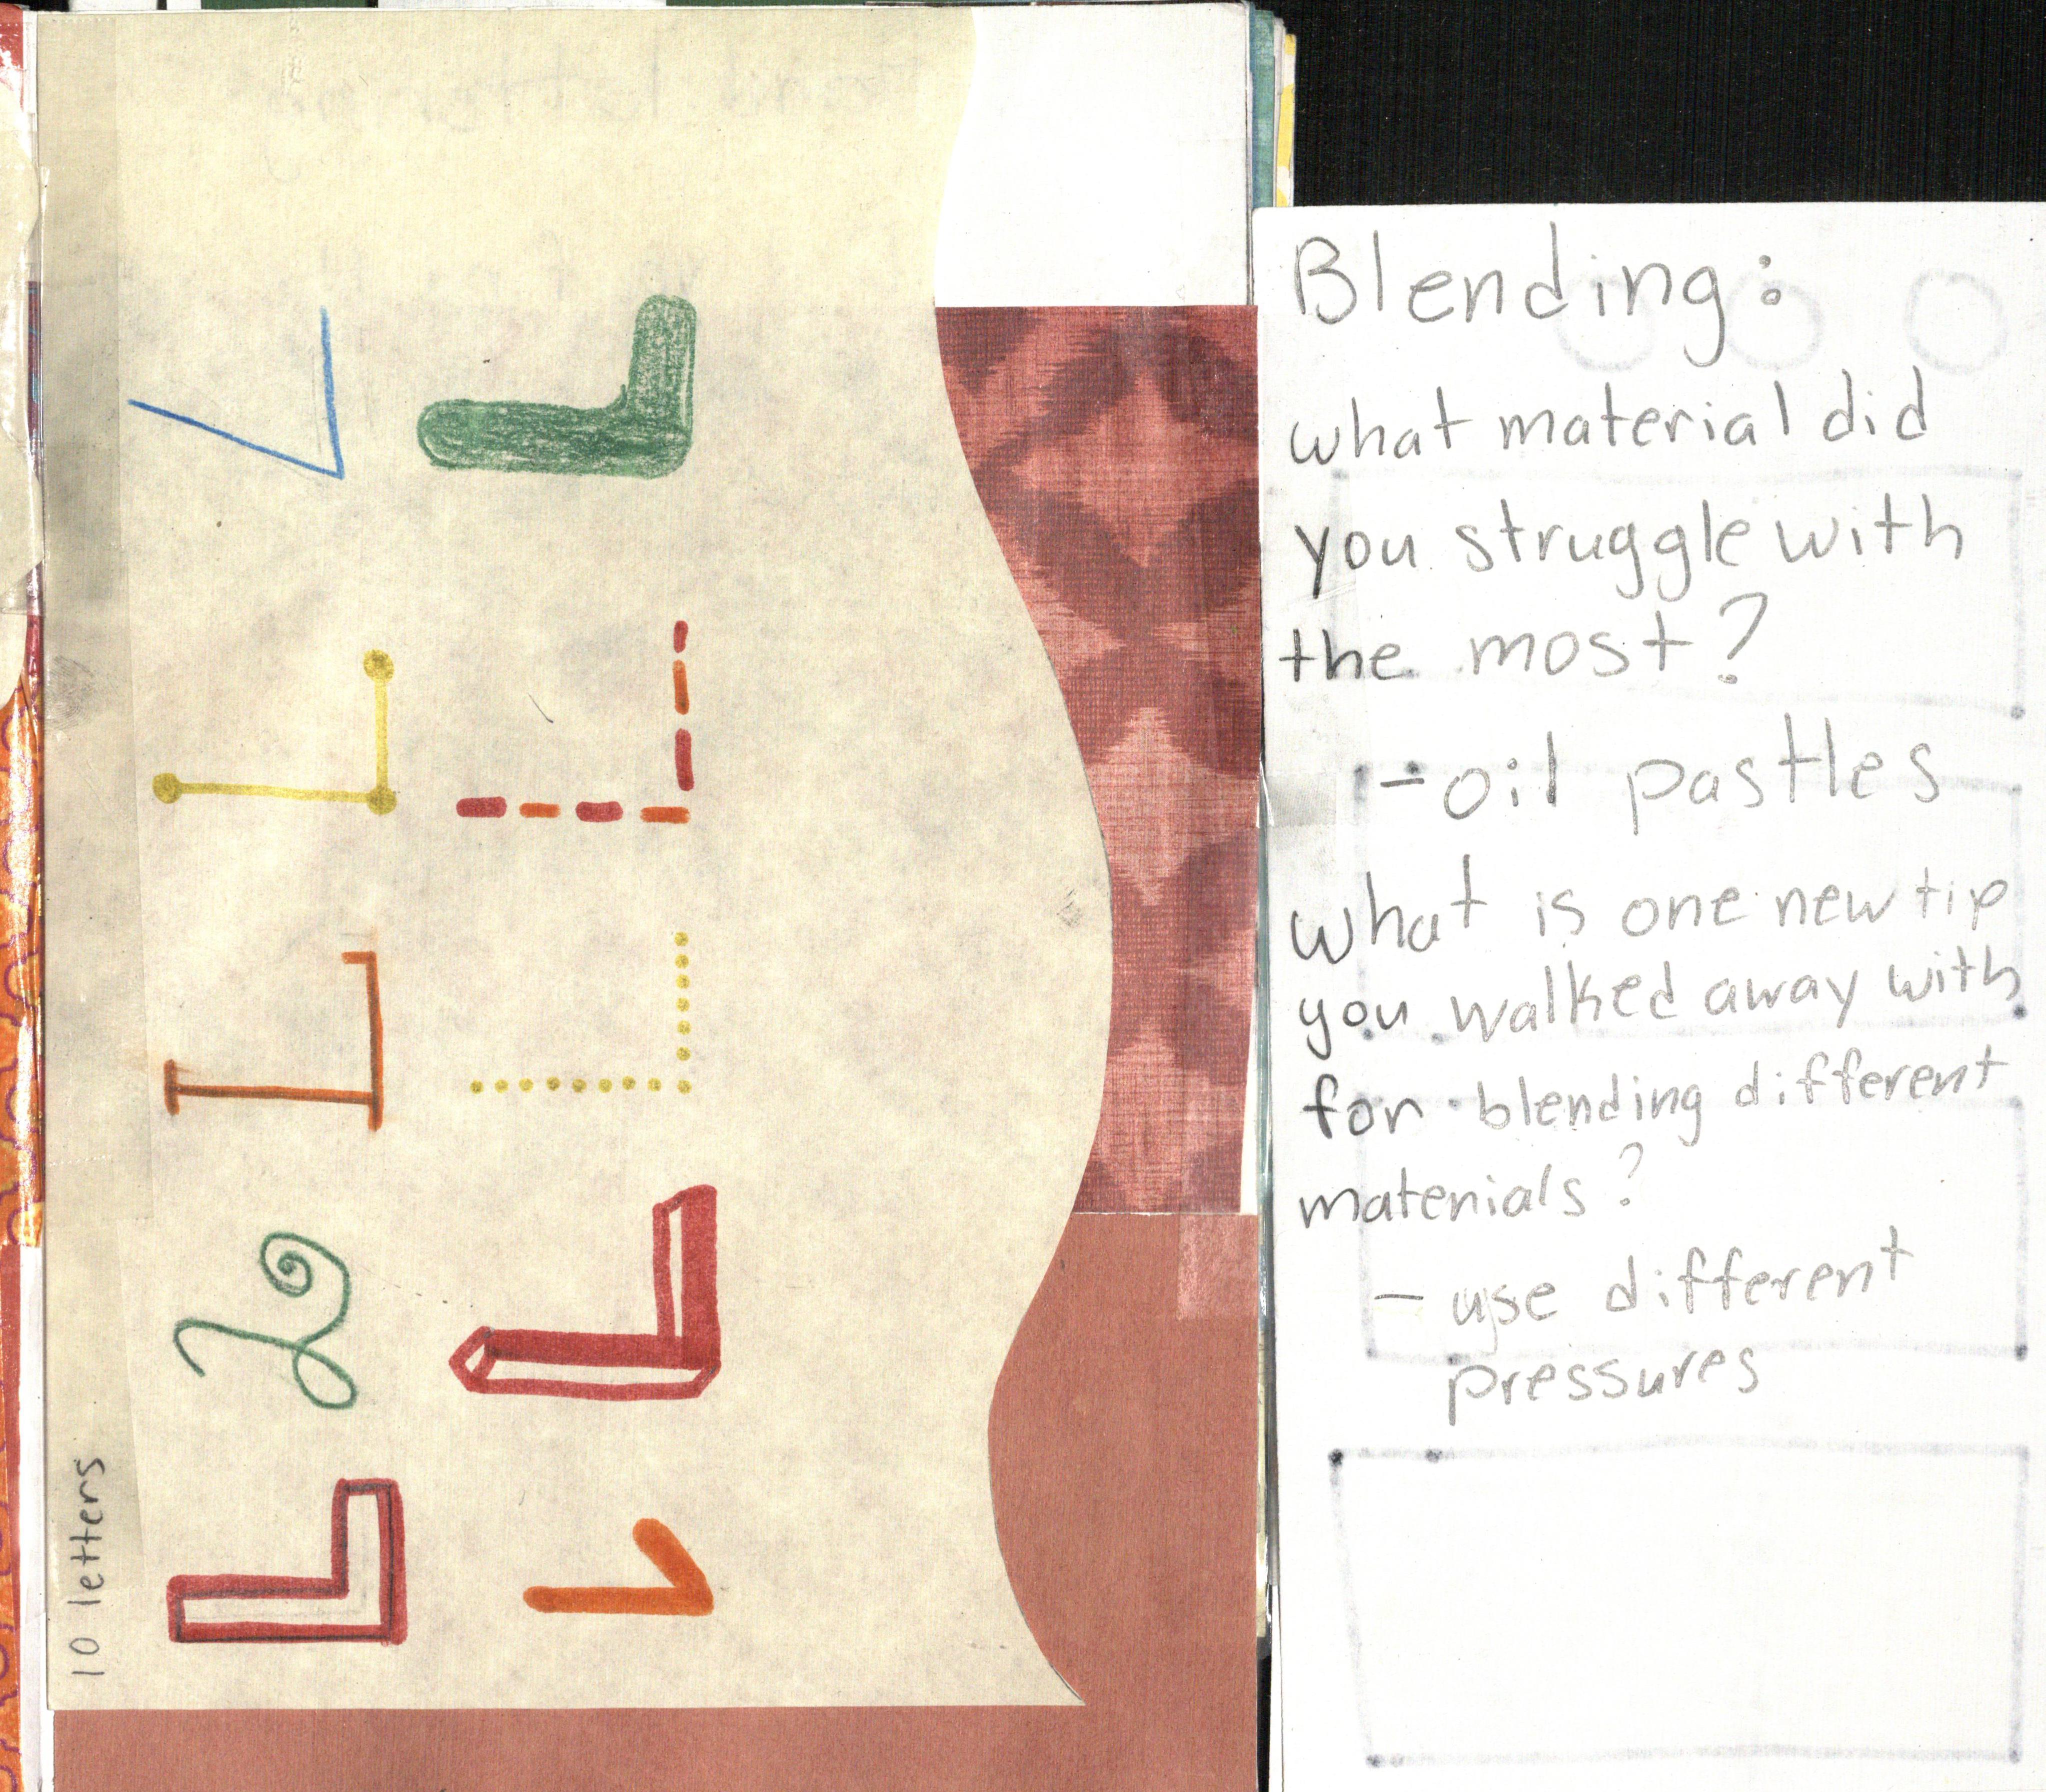 10 letters
L L L L L
L L L L L
Blending:
what material did
you struggle with
the most?
- oil pastles
what is one new tip
you walked away with
for blending different
materials?
- use different
pressures